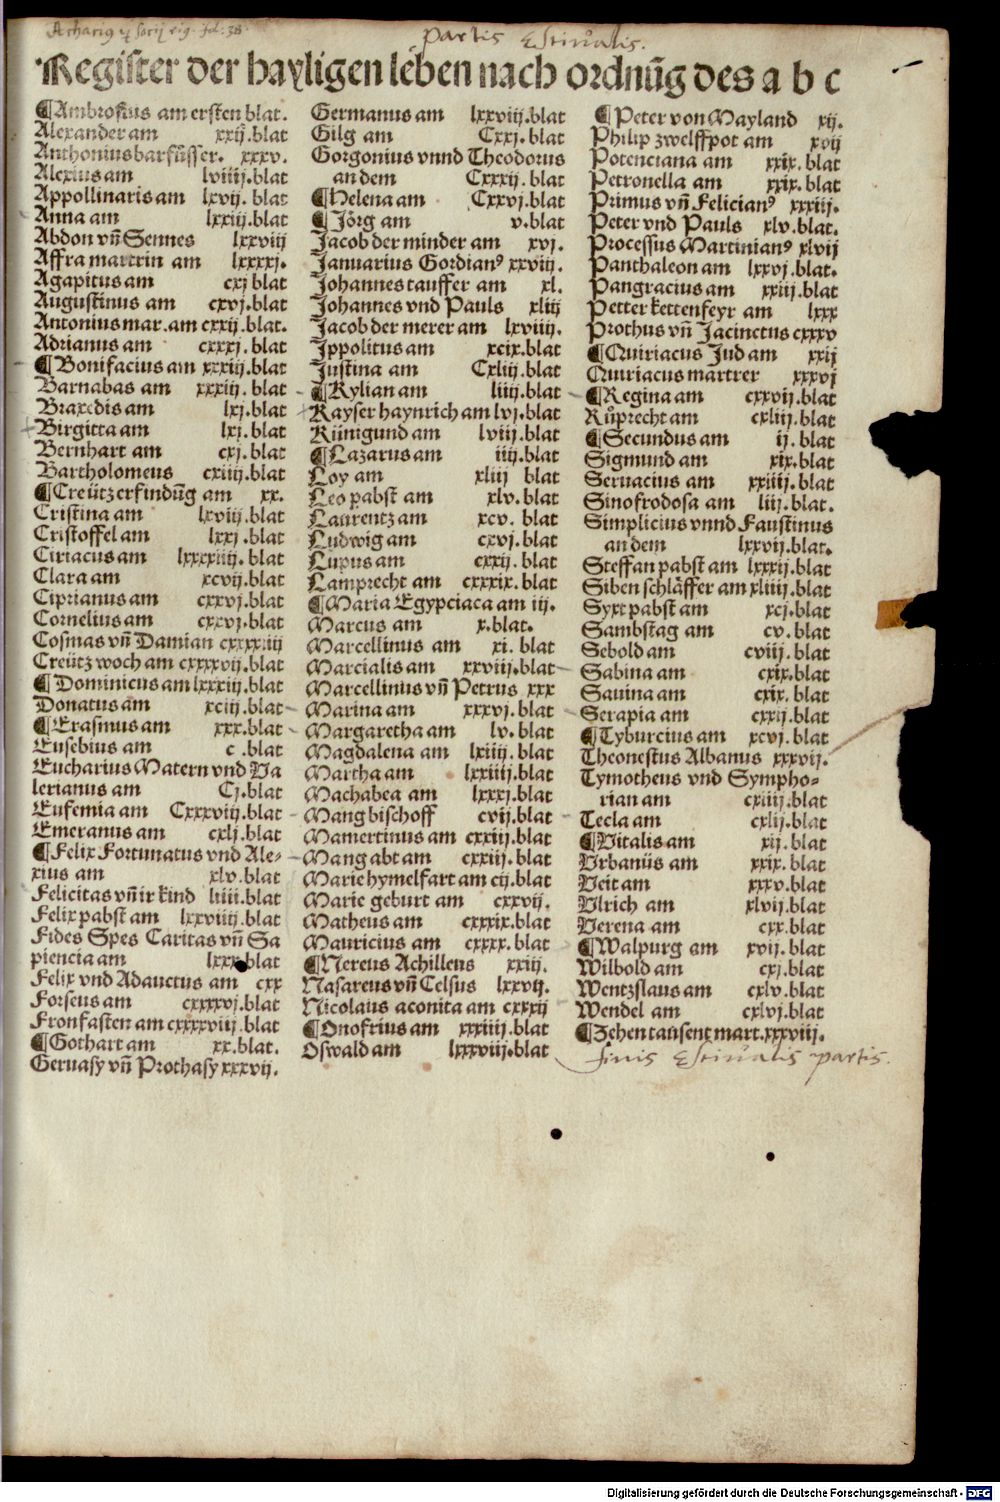 partis Estiualis.
Register der hayligen leben nach ordnūg des a b c
¶Ambrosius am ersten blat.
Alexander am xxij.blat
Anthonius barfüsser. xxxv.
Alexius am lviiij.blat
Appollinaris am lxvij. blat
Anna am lxxiij.blat
Abdon vñ Sennes lxxviij
Affra martrin am lxxxxj.
Agapitus am cxj blat
Augustinus am cxvj.blat
Antonius mar.am cxxij.blat.
Adrianus am cxxxj.blat
¶Bonifacius am xxxiij.blat
Barnabas am xxxiij. blat
Braxedis am lxj.blat
Birgitta am lxj.blat
Bernhart am cxj.blat
Bartholomeus cxiiij.blat
¶Creützerfindūg am xx.
Cristina am lxviij.blat
Cristoffel am lxxj.blat
Ciriacus am lxxxxiiij.blat
Clara am xcvij.blat
Ciprianus am cxxvj.blat
Cornelius am cxxvj.blat
Cosmas vñ Damian
Creütz woch am cxxxxvij.blat
¶Dominicus am lxxxiij.blat
Donatus am xciij.blat
¶Erasmus am xxx.blat
Eusebius am c .blat
Eucharius Matern vnd Va
lerianus am Cj.blat
Eufemia am Cxxxviij.blat
Emeranus am cxlj.blat
¶Felix Fortunatus vnd Ale-
xius am xlv.blat
Felicitas vñ ir kind liiij.blat
Felix pabst am lxxviiij.blat
Fides Spes Caritas vñ Sa
piencia am lxxx.blat
Felix vnd Adauctus am cxx
Forseus am cxxxxvj.blat
Fronfasten am cxxxxviij.blat
¶Gothart am xx.blat.
Geruasy vñ Prothasy xxxvij.
Germanus am lxxviij.blat
Gilg am Cxxj.blat
Gorgonius vnnd Theodorus
an dem Cxxxij.blat
¶Helena am Cxxvj.blat
¶Jörg am v.blat
Jacob der minder am xvj.
Januarius Gordianꝰ xxviij.
Johannes tauffer am xl.
Johannes vnd Pauls xliij
Jacob der merer am lxviiij.
Ippolitus am xcix.blat
Justina am Cxliij.blat
¶Kylian am liiij.blat
Kayser haynrich am lvj.blat
Künigund am lviij.blat
¶Lazarus am iiij.blat
Loy am xliij blat
Leo pabst am xlv.blat
Laurentz am xcv. blat
Ludwig am cxvj.blat
Lupus am cxxij.blat
Lamprecht am cxxxix.blat
¶Maria Egypciaca am iij.
Marcus am x.blat.
Marcellinus am xi. blat
Marcialis am xxviij.blat
Marcellinus vñ Petrus xxx
Marina am xxxvj.blat
Margaretha am lv. blat
Magdalena am lxiiij.blat
Martha am lxxiiij.blat
Machabea am lxxxj.blat
Mang bischoff cvij.blat
Mamertinus am cxxiij.blat
Mang abt am cxxiij.blat
Marie hymelfart am cij.blat
Marie geburt am cxxvij.
Matheus am cxxxix.blat
Mauricius am cxxxx.blat
¶Nereus Achilleus xxiij.
Nasareus vñ Celsus lxxvij.
Nicolaus aconita am cxxxij
¶Onofrius am xxxiiij.blat
Oswald am lxxxviij.blat
¶Peter von Mayland xij.
Philip zwelffpot am xvij
Potenciana am xxix.blat
Petronella am xxix.blat
Primus vñ Felicianꝰ xxxiij.
Peter vnd Pauls xlv.blat.
Processus Martinianꝰ xlvij
Panthaleon am lxxvj.blat.
Pangracius am xxiij.blat
Petter kettenfeyr am lxxx
Prothus vñ Jacinctus cxxxv
¶Quiriacus Jud am xxij
Quiriacus martrer xxxvj
¶Regina am cxxvij.blat
Růprecht am cxliij.blat
¶Secundus am ij.blat
Sigmund am xix.blat
Seruacius am xxiiij.blat
Sinofrodosa am liij.blat.
Simplicius vnnd Faustinus
an dem lxxvij.blat.
Steffan pabst am lxxxij.blat
Siben schläffer am xliiij.blat
Syxt pabst am xcj.blat
Sambstag am cv. blat
Sebold am cviij. blat
Sabina am cxix.blat
Sauina am cxix.blat
Serapia am cxxij.blat
¶Tyburcius am xcvj.blat
Theonestus Albanus xxxvij.
Tymotheus vnd Sympho-
rian am cxiiij.blat
Tecla am cxlij.blat
¶Vitalis am xij.blat
Vrbanus am xxix.blat
Veit am xxxv.blat
Vlrich am xlvij.blat
Verena am cxx.blat
¶Walpurg am xvij.blat
Wilbold am cxj.blat
Wentzslaus am cxlv.blat
Wendel am cxlvj.blat
¶Zehen tausent mart.xxxviij.
finis Estiualis partis.
Digitalisierung gefördert durch die Deutsche Forschungsgemeinschaft - DFG